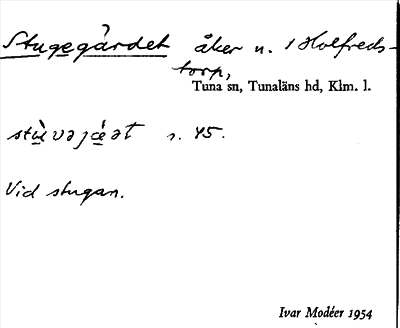 Stugegärdet åker n. 1 Holfreds-
torp,
Tuna sn, Tunaläns hd, Klm. l.
s. 45.
Vid stugan.
Ivar Modéer 1954